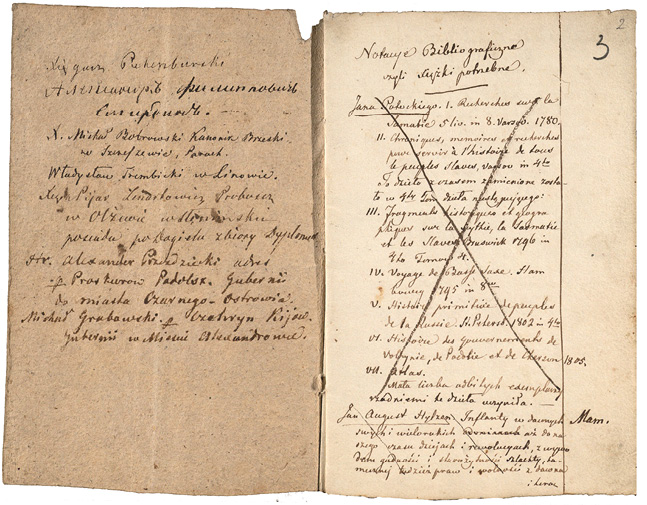 Xiądz
Александръ Филипповичъ
X. Michał Bobrowski Kanonik Brzeski
w Szereszewie, Paroch.
Władysław Trembicki w Linowie.
Xiądz Pijar Proboszcz
w Olzewie w Słonimsku
posiada po Dogielu zbiory Dyplomat
Hr. Alexander Przezdziecki adres
p Proskurow Podolsk. Gubernii
do miasta Czarnego-Ostrowia.
Michał Grabowski p Czehryn Kijow.
Gubernii w Mieście Alexandrowce.
2
3
Notacye Bibliograficzne
czyli książki potrzebne.
Jana Potockiego. I. Recherches sur la
Sarmatie 5 liv. in 8. Varso. 1780.
II. Chroniques, memoires et recherches
pour servir à l'histoire de tous
le peuples Slaves, Varsov in 4to
To dzieło z czasem zamienione zosta-
ło w 4ty Tom dzieła następującego:
III. Fragments historiques et geogra
phiques sur la Scythie, la Sarmatie
et les Slaves Brunswick 1796 in
4to Tomow 4.
IV. Voyage de Basse Saxe. Ham
bourg 1795 in 8vo
V. Histoire primitive de peuples
de la Russie. St. Petersb. 1802 in 4to
VI. Histoire des Gouvernements de
Volhynie, de Podolie et de Cherson 1805.
VII. Atlas.
Mała liczba odbitych exemplarzy
rzadniemi te dzieła uczyniła.
Jan August Hylzen Inflanty w dawnych
swych i wielorakich odmianach aż do na-
szego czasu dziejach i rewolucyach, z wywo
dem godności i starożytności szlachty, ta-
meczney tudzież praw i wolności z dawna
i teraz
Mam.